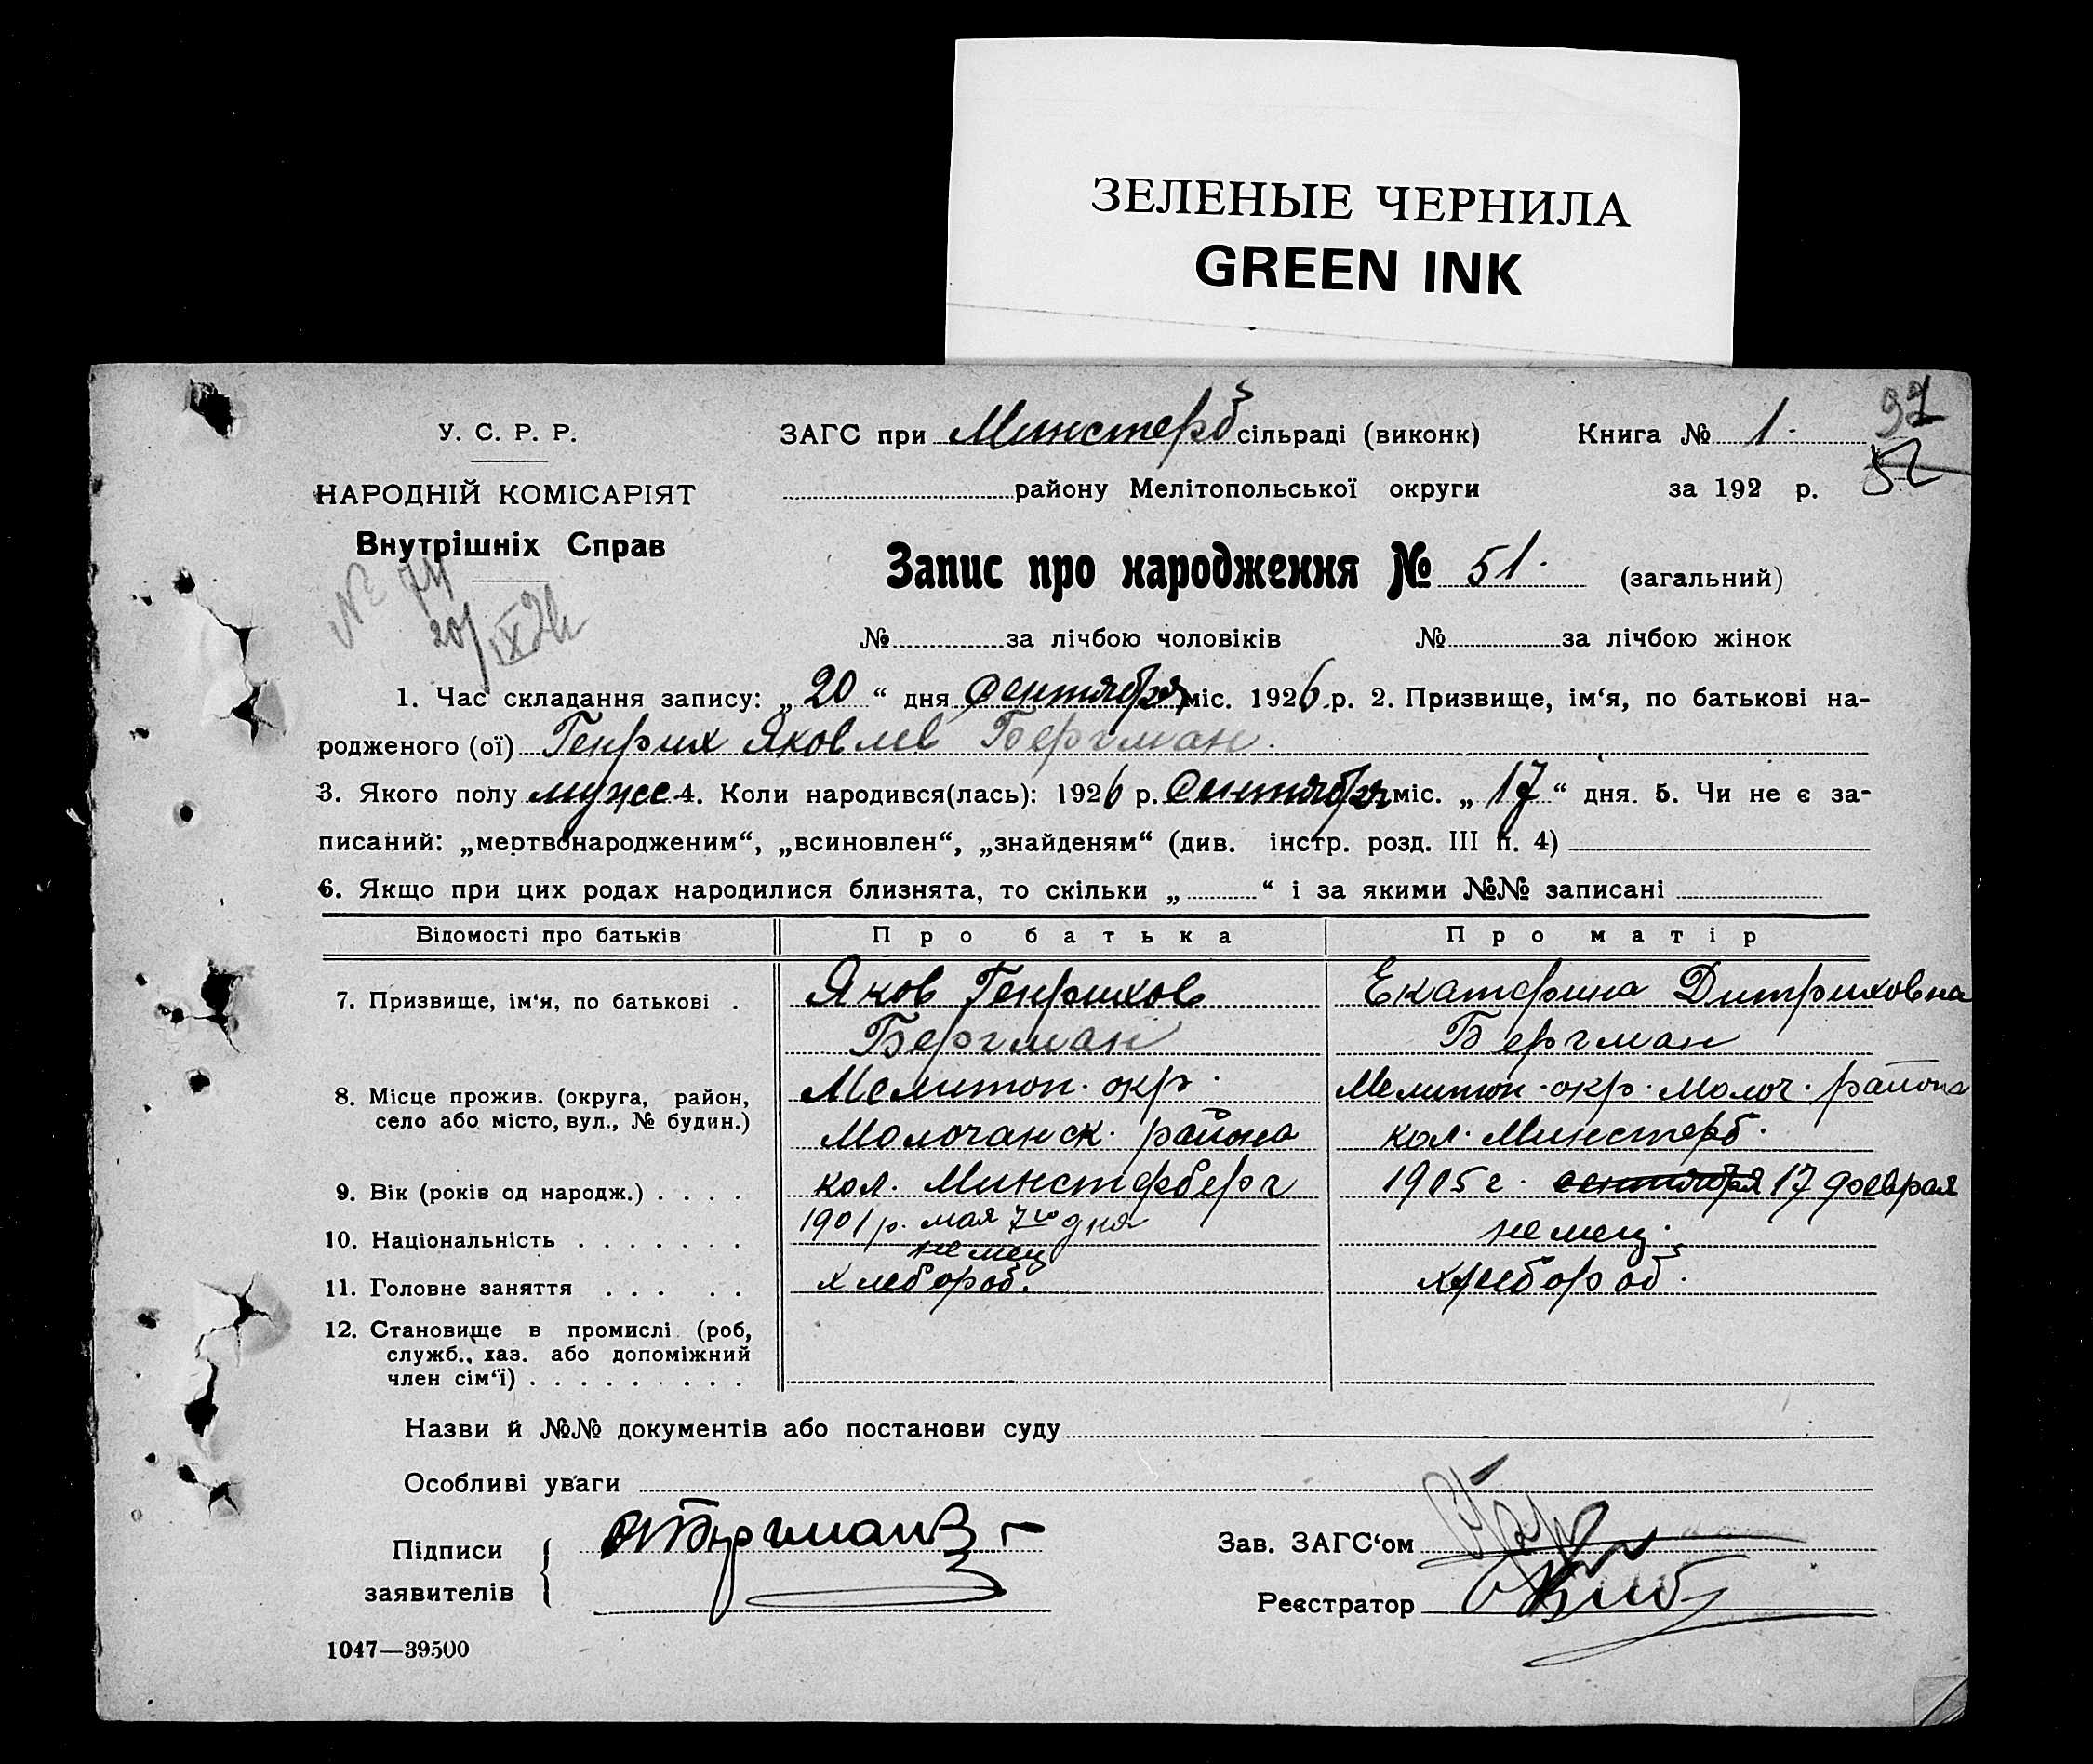 ЗЕЛЕНЫЕ ЧЕРНИЛА
GREEN INK
97
52
У. С. Р. Р.
НАРОДНІЙ КОМІСАРІЯТ
Внутрішніх Справ
№ 74
20/IX 26
ЗАГС при Минстерб сільраді (виконк) Книга № 1.
району Мелітопольської округи за 192 р.
Запис про народження № 51. (загальний)
№ за лічбою чоловіків № за лічбою жінок
1. Час складання запису: „20“ дня Сентября міс. 1926 р. 2. Призвище, ім‘я, по батькові на-
родженого (ої) Генрих Яковлев Бергман.
3. Якого полу мужс 4. Коли народився(лась): 1926 р. Сентября міс. „17“ дня. 5. Чи не є за-
писаний: „мертвонародженим“, „всиновлен“, „знайденям“ (див. інстр. розд. III п. 4)
6. Якщо при цих родах народилися близнята, то скільки „ “ і за якими №№ записані
Відомості про батьків Про батька Про матір
7. Призвище, ім‘я, по батькові . Яков Генрихов Екатерина Дитриховна
Бергман Бергман
8. Місце прожив. (округа, район, село або місто, вул., № будин.) Мелитоп. окр. Мелитоп. окр. Молоч. района
Молочанск. района кол. Минстерб.
9. Вік (років од народж.) . . . . кол. Минстерберг 1905 г. сентября 17 февраля
10. Національність . . . . . . . 1901 р. мая 7го дня немец.
немец
11. Головне заняття . . . . . хлебороб. хлебороб.
12. Становище в промислі (роб,
служб., хаз. або допоміжний
член сім‘ї) . . . . . . . . .
Назви й №№ документів або постанови суду
Особливі уваги
Підписи заявителів Бергман
Зав. ЗАГС‘ом
Реєстратор
1047—39500